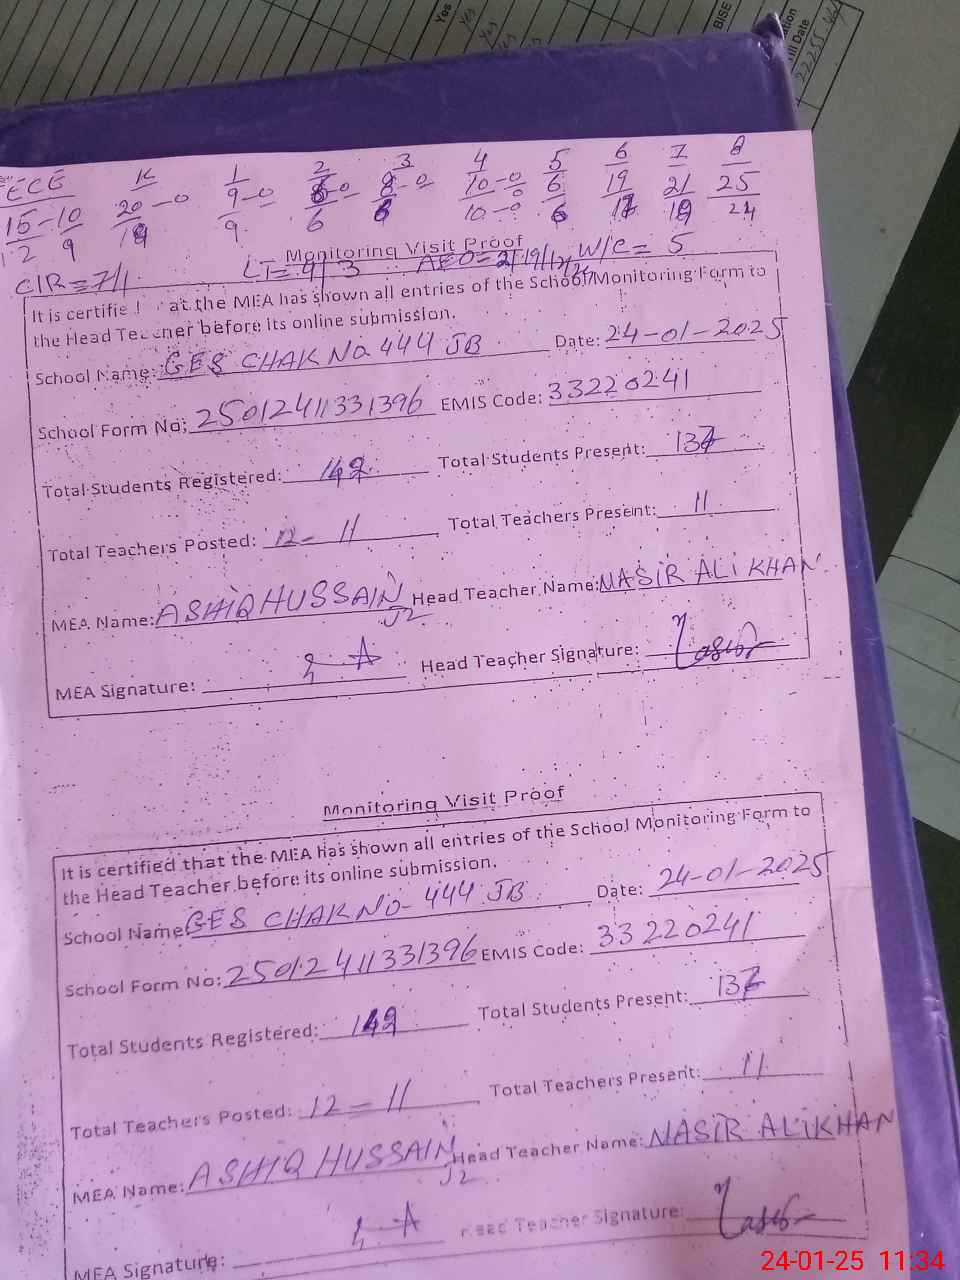 Yes
Yes
Yes
Yes
BISE
ECE K 1 2 3 4 5 6 7 8
15-10 20-0 9-0 8-0 8-0 10-0 6 19 21 25
12 9 9 6 6 10-0 6 24
Monitoring Visit Proof
CIR=7/1 LT=4/3 W/C= 5
It is certifie at the MEA has shown all entries of the School Monitoring Form to
the Head Teacher before its online submission.
School Name: GES CHAK No. 444 JB Date: 24-01-2025
School Form No: 25012411331396 EMIS Code: 33220241
Total Students Registered: 142 Total Students Present: 137
Total Teachers Posted: 12- 11 Total Teachers Present: 11
MEA Name: ASHIQ HUSSAIN Head Teacher Name: NASIR ALI KHAN
J2
MEA Signature: Head Teacher Signature:
Monitoring Visit Proof
It is certified that the MEA has shown all entries of the School Monitoring Form to
the Head Teacher before its online submission.
School Name: GES CHAK No- 444 JB Date: 24-01-2025
School Form No: 25012411331396 EMIS Code: 33220241
Total Students Registered: 142 Total Students Present: 137
Total Teachers Posted: 12-11 Total Teachers Present: 11
MEA Name: ASHIQ HUSSAIN Head Teacher Name: NASIR ALI KHAN
J2
MEA Signature: Head Teacher Signature:
24-01-25 11:34